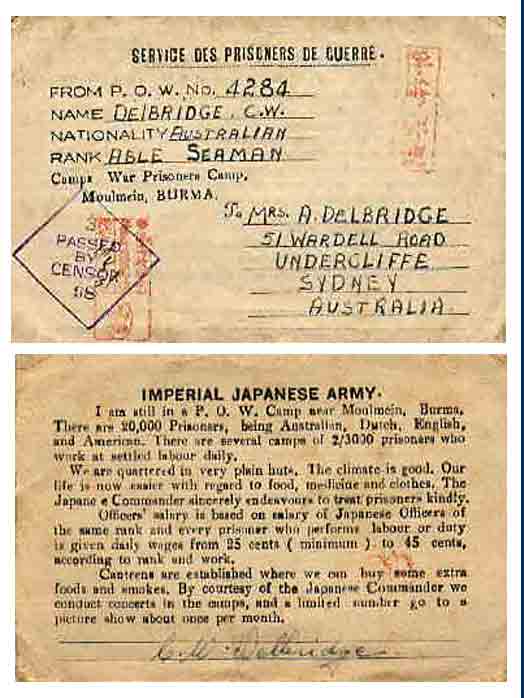 SERVICE DES PRISONERS DE GUERRE.
FROM P. O. W. No. 4284
NAME DELBRIDGE. C.W.
NATIONALITY AUSTRALIAN
RANK ABLE SEAMAN
Camps War Prisoners Camp,
Moulmein, BURMA.
To MRS. A. DELBRIDGE
51 WARDELL ROAD
UNDERCLIFFE
SYDNEY
AUSTRALIA.
PASSED
BY
CENSOR
98
IMPERIAL JAPANESE ARMY.
I am still in a P. O. W. Camp near Moulmein, Burma.
There are 20,000 Prisoners, being Australian, Dutch, English,
and American. There are several camps of 2/3000 prisoners who
work at settled labour daily.
We are quartered in very plain huts. The climate is good. Our
life is now easier with regard to food, medicine and clothes. The
Japane e Commander sincerely endeavours to treat prisoners kindly.
Officers' salary is based on salary of Japanese Officers of
the same rank and every prisoner who performs labour or duty
is given daily wages from 25 cents ( minimum ) to 45 cents,
according to rank and work.
Canteens are established where we can buy some extra
foods and smokes. By courtesy of the Japanese Commander we
conduct concerts in the camps, and a limited number go to a
picture show about once per month.
C.W. Delbridge.